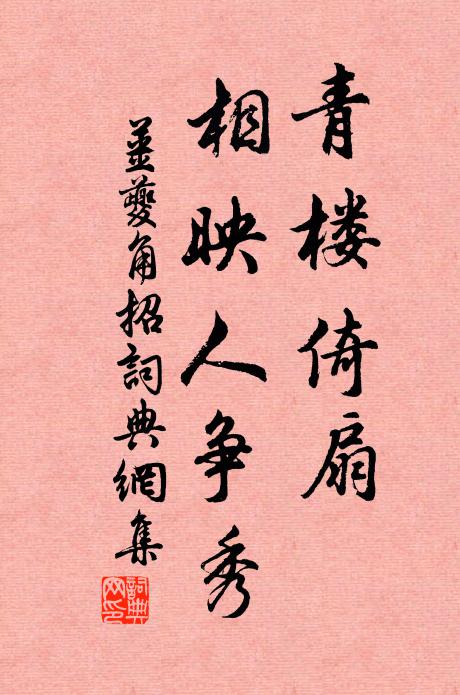 青楼倚扇
相映人争秀
姜夔角招詞典網集
詞典網印